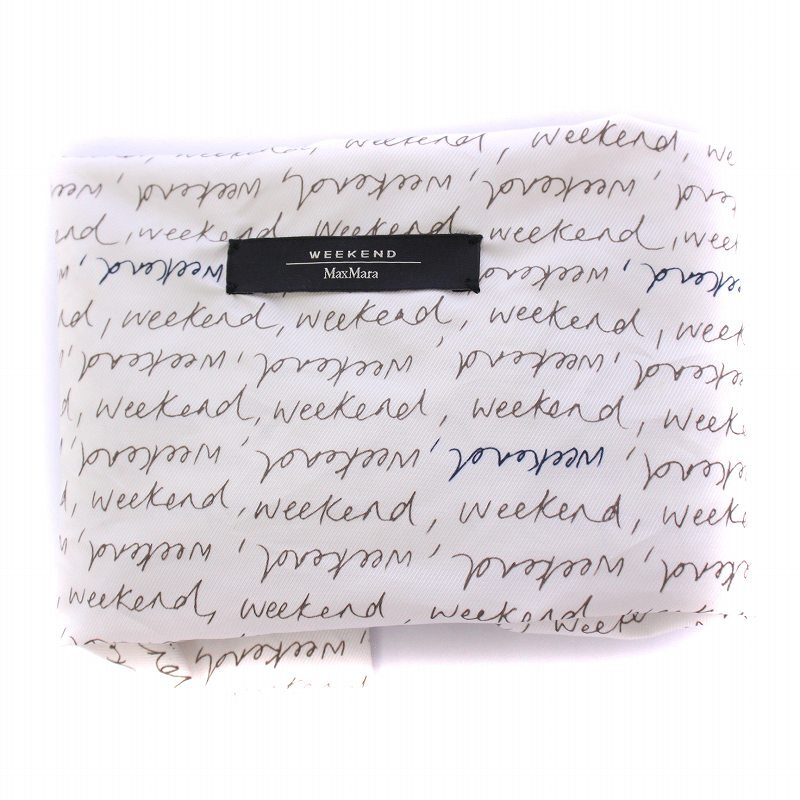 weekend, weekend, we
weekend, weekend, weekend, weekend, weekend
weekend, weekend, weekend, weekend
weekend, weekend
WEEKEND
MaxMara
weekend, weekend, weekend, weekend, week
weekend, weekend, weekend, weekend
weekend, weekend, weekend, week
weekend, weekend, weekend, weekend
weekend, weekend, weekend, week
weekend, weekend, weekend, weekend
weekend, weekend, weekend
weekend
weekend